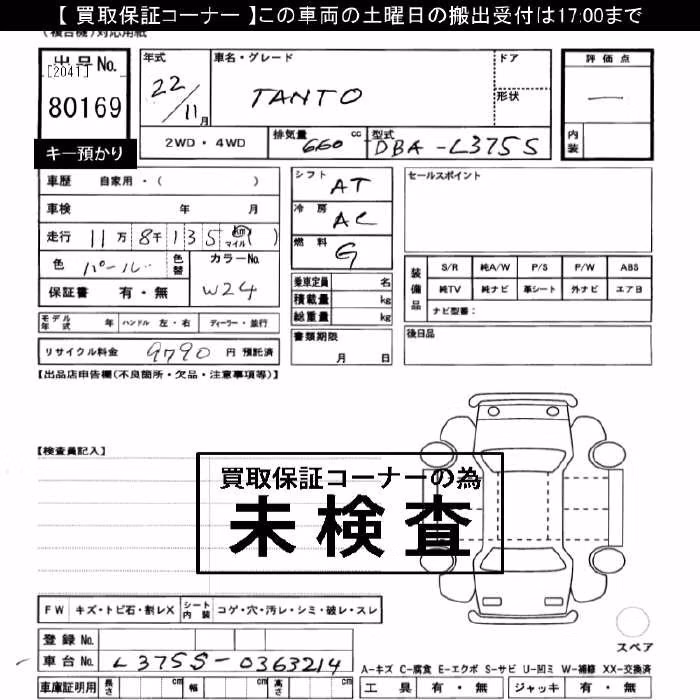 【 買取保証コーナー 】この車両の土曜日の搬出受付は17:00まで
(複合機)対応用紙
出品No.
[2041]
80169
キー預かり
年式 車名・グレード ドア
22/11月 TANTO 形状
評価点
一
内装
2WD・4WD 排気量 660 cc 型式 DBA-L375S
車歴 自家用・( )
車検 年 月
走行 11万8千135 km マイル ( )
色 パール 色替 カラーNo.
保証書 有・無 W24
シフト AT
冷房 AC
燃料 G
乗車定員 名
積載量 kg
総重量 kg
セールスポイント
装備品 S/R 純A/W P/S P/W ABS
純TV 純ナビ 革シート 外ナビ エアB
ナビ型番:
モデル年式 年 ハンドル 左・右 ディーラー・並行
書類期限
月 日
後日品
リサイクル料金 9790 円 預託済
【出品店申告欄(不良箇所・欠品・注意事項等)】
【検査員記入】
買取保証コーナーの為
未検査
FW キズ・トビ石・割レX シート内装 コゲ・穴・汚レ・シミ・破レ・スレ
登録No.
車台No. L375S-0363214
スペア
A-キズ C-腐食 E-エクボ S-サビ U-凹ミ W-補修 XX-交換済
車庫証明用 長さ cm 幅 cm 高さ cm
工具 有・無 ジャッキ 有・無